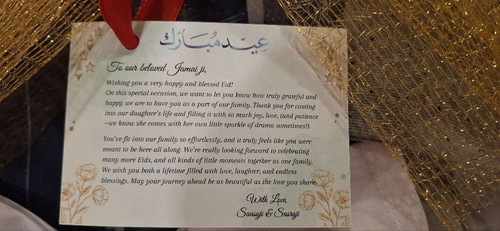 عيد مبارك
To our beloved Jamai ji,
Wishing you a very happy and blessed Eid!
On this special occasion, we want to let you know how truly grateful and
happy we are to have you as a part of our family. Thank you for coming
into our daughter's life and filling it with so much joy, love, (and patience
—we know she comes with her own little sparkle of drama sometimes!).
You've fit into our family so effortlessly, and it truly feels like you were
meant to be here all along. We're really looking forward to celebrating
many more Eids, and all kinds of little moments together as one family.
We wish you both a lifetime filled with love, laughter, and endless
blessings. May your journey ahead be as beautiful as the love you share.
With Love,
Saasuji & Sasraji